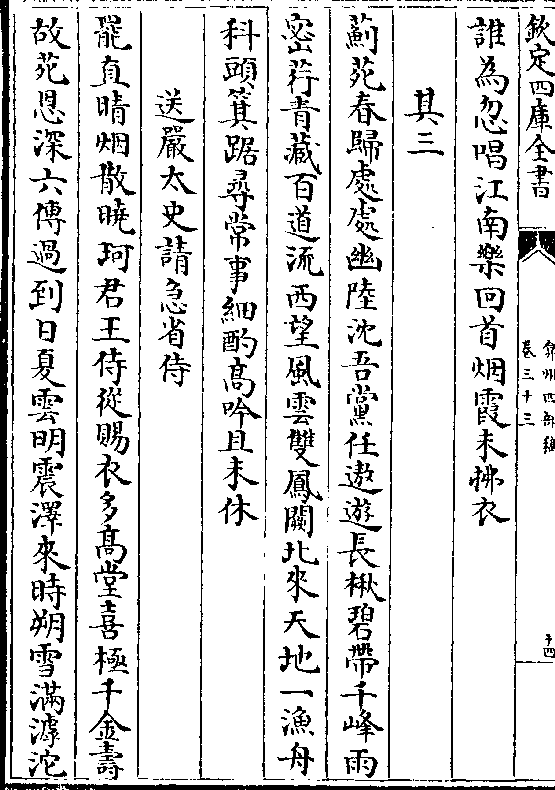 欽定四庫全書
弇州四部稿
卷三十三
十四
誰為忽唱江南樂回首烟霞未拂衣
其三
薊苑春歸處處幽陸沈吾黨任遨遊長楸碧帶千峰雨
密荇青藏百道流西望風雲雙鳳闕北來天地一漁舟
科頭箕踞尋常事細酌高吟且未休
送嚴太史請急省侍
罷直晴烟散曉珂君王侍從賜衣多高堂喜極千金壽
故苑恩深六傳過到日夏雲明震澤來時朔雪滿滹沱